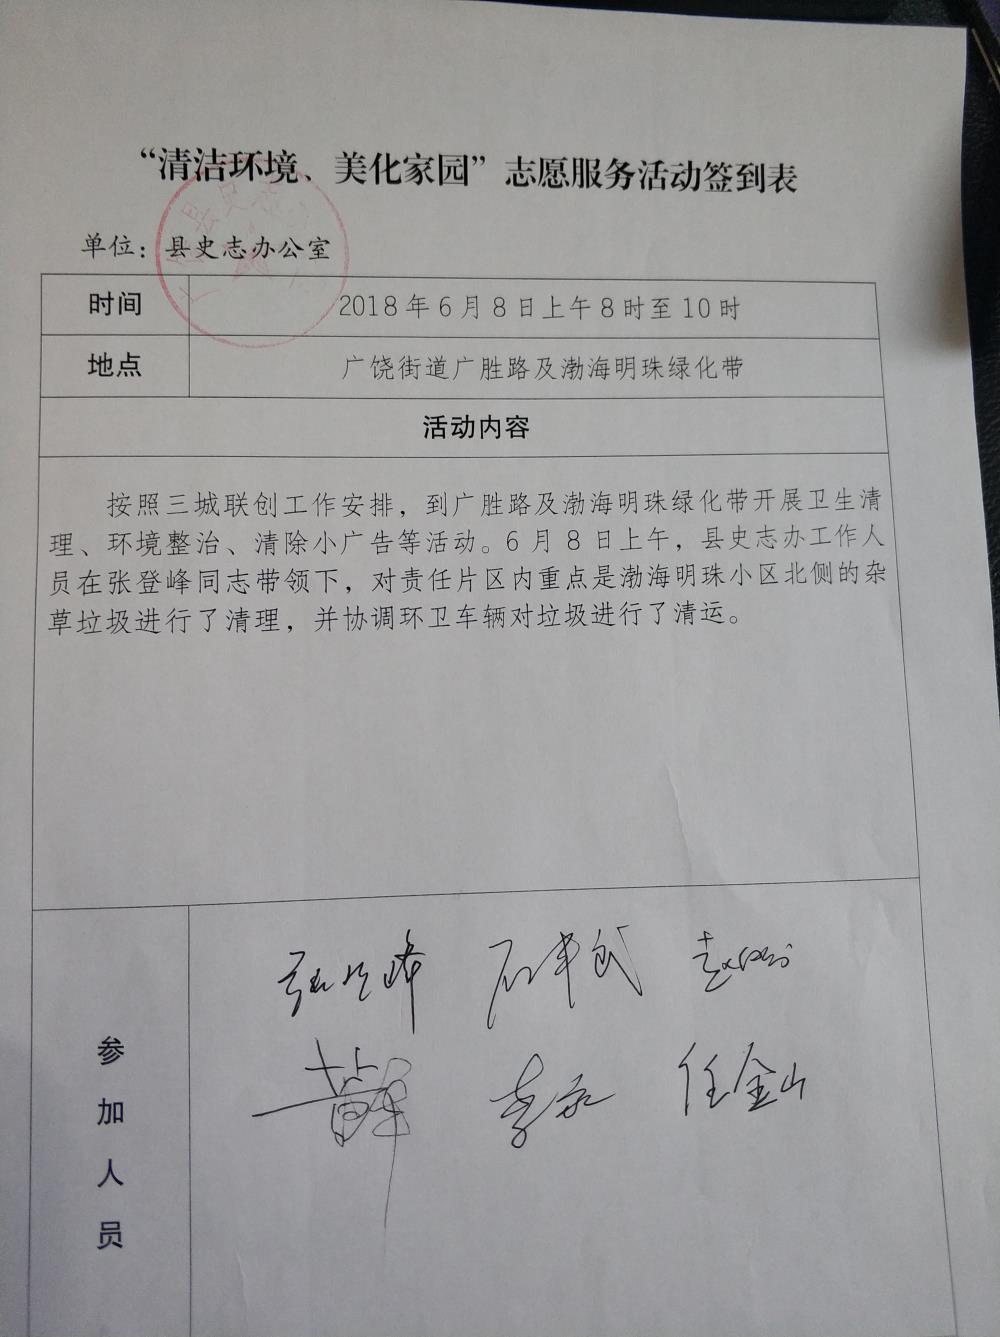 “清洁环境、美化家园”志愿服务活动签到表
单位：县史志办公室
时间 2018年6月8日上午8时至10时
地点 广饶街道广胜路及渤海明珠绿化带
活动内容
按照三城联创工作安排，到广胜路及渤海明珠绿化带开展卫生清
理、环境整治、清除小广告等活动。6月8日上午，县史志办工作人
员在张登峰同志带领下，对责任片区内重点是渤海明珠小区北侧的杂
草垃圾进行了清理，并协调环卫车辆对垃圾进行了清运。
参加人员
张登峰
任金山